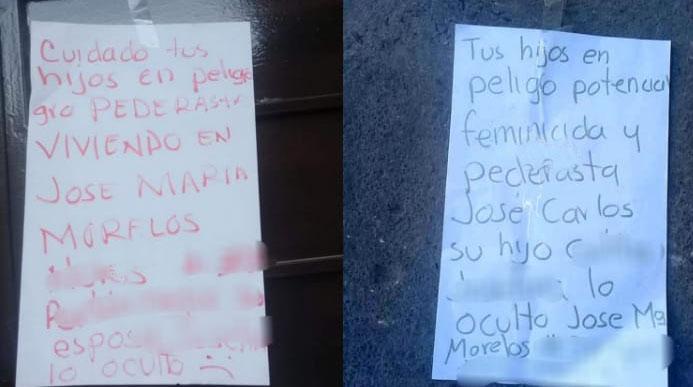 Cuidado tus
hijos en pelig
gro PEDERASTA
VIVIENDO EN
JOSE MARIA
MORELOS
espos
lo oculto
Tus hijos en
peligo potencial
feminicida y
pederasta
José Carlos
su hijo C
lo
oculto Jose Mª
Morelos